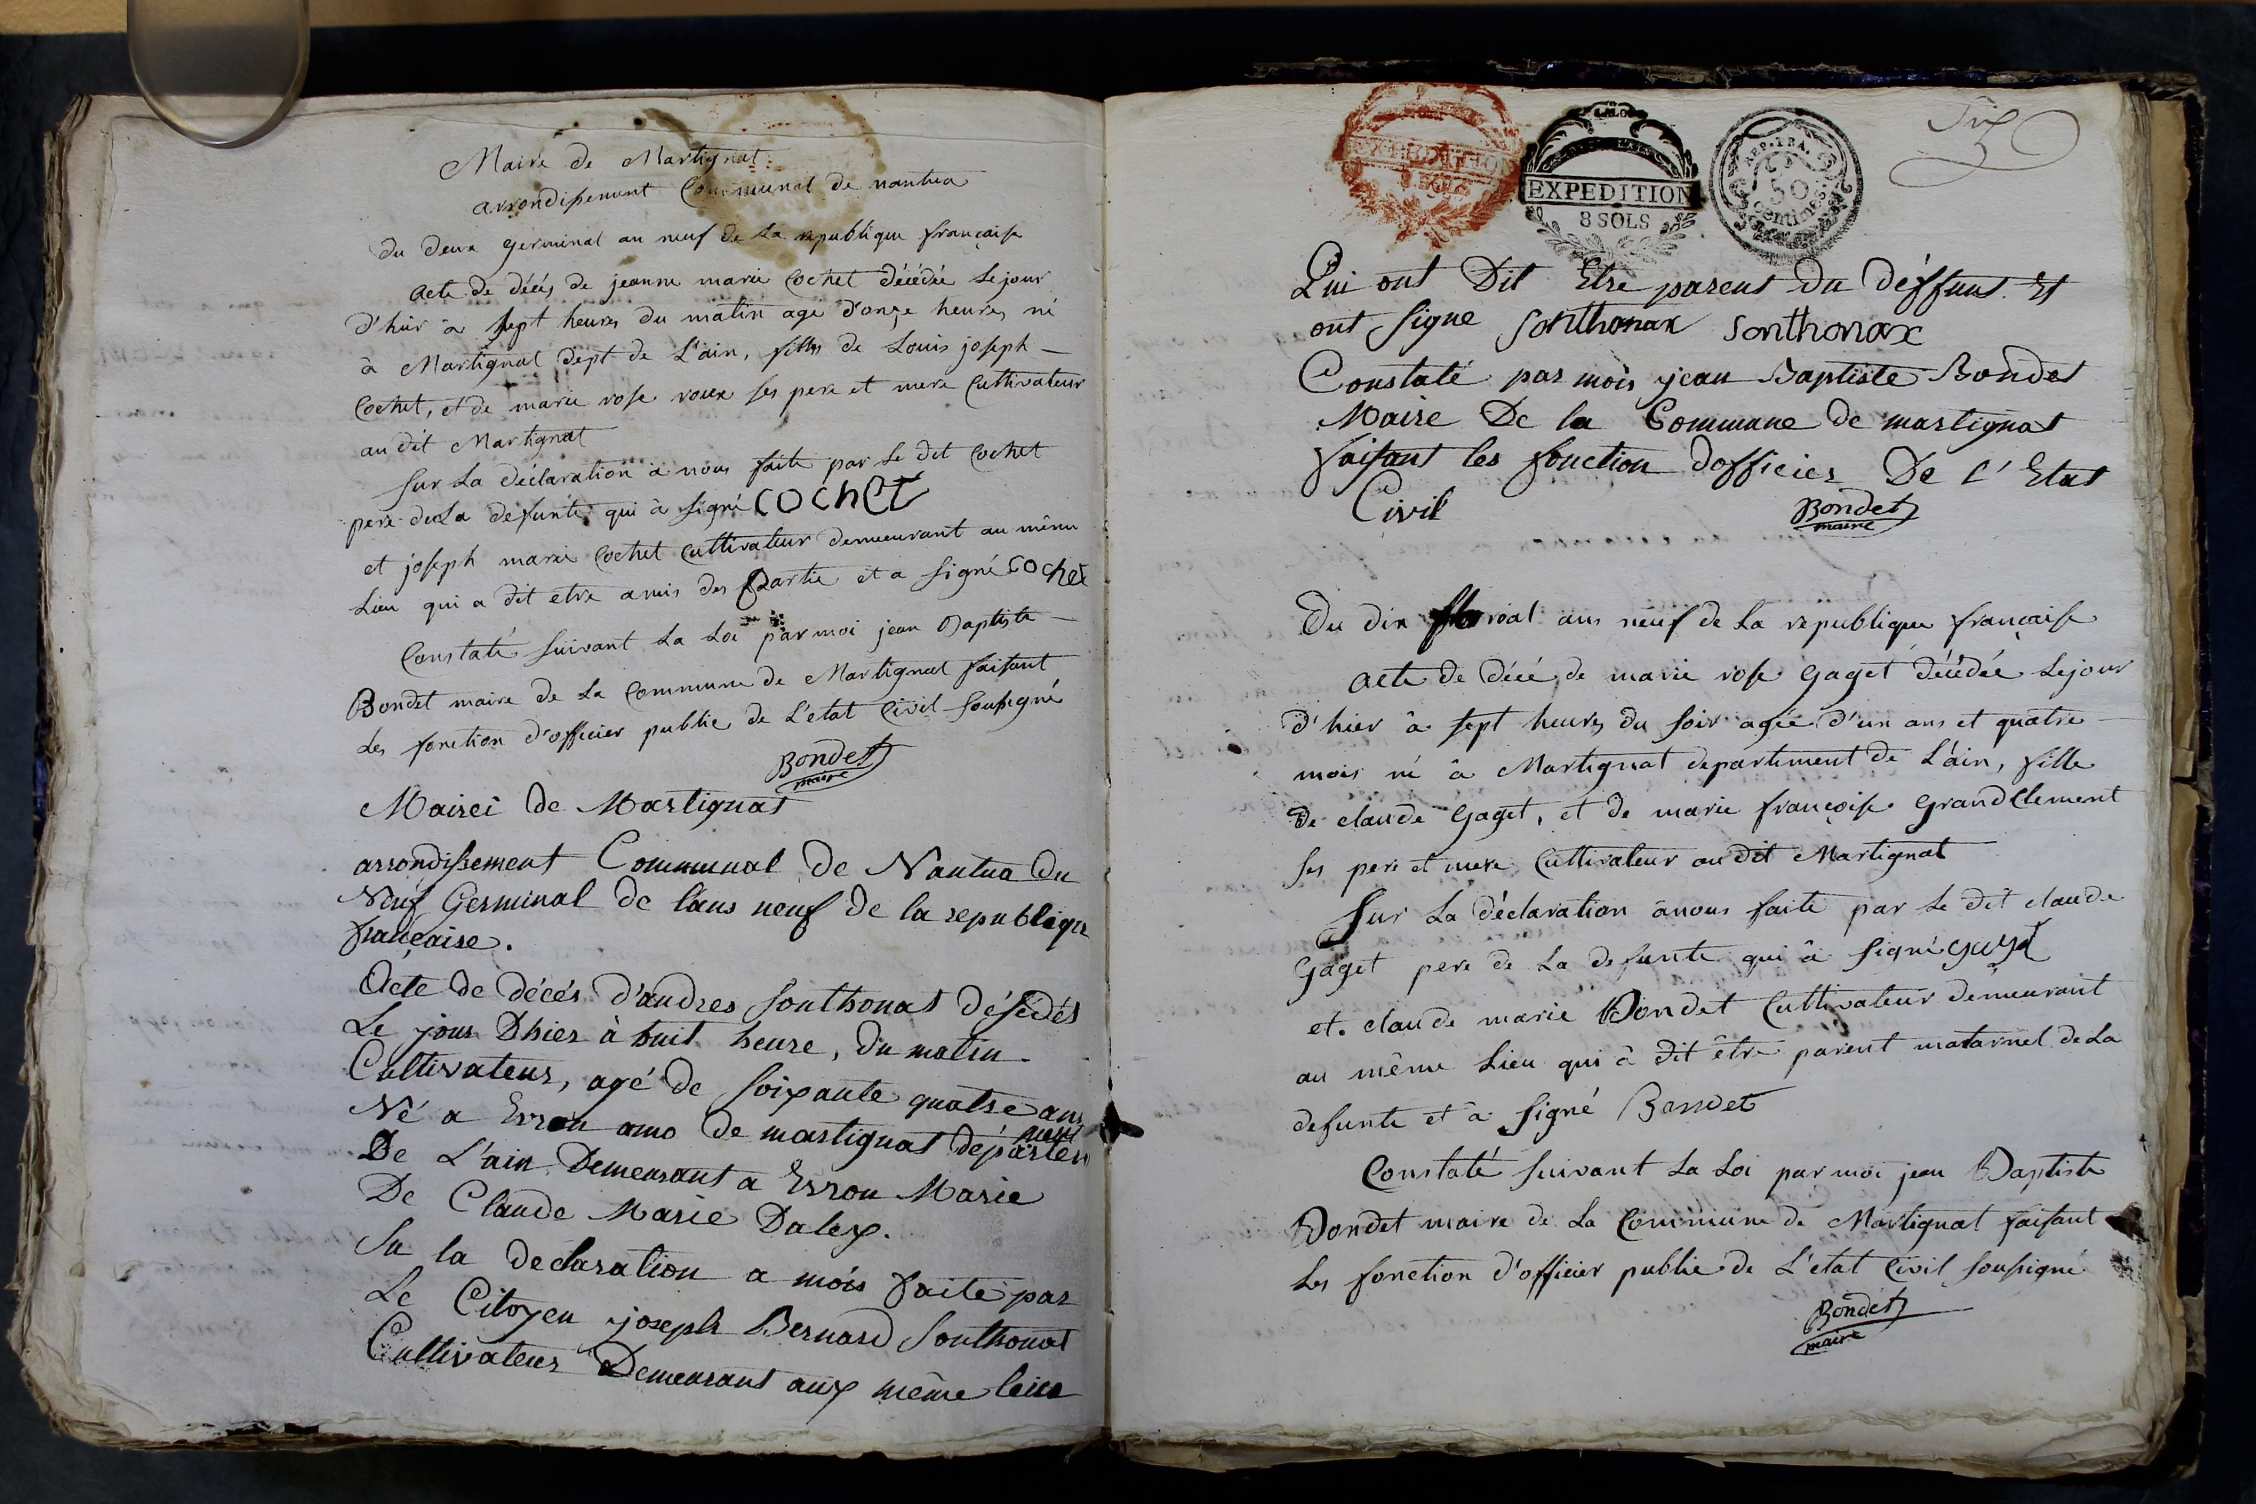 Maire de Martignat
arrondissement Communal de nantua
du deux germinal an neuf de La republique française
acte de décés de jeanne marie Cochet décédée le jour
d'hier à sept heures du matin age d'onze heures né
à Martignat dept de L'ain, fille de Louis joseph
Cochet, et de marie rose roux ses pere et mere Cultivateur
au dit Martignat
sur La déclaration à nous faite par Le dit Cochet
pere de La defunte qui à signé COCHET
et joseph marie Cochet Cultivateur demeurant au même
Lieu qui a dit etre amis des Partie et a signé cochet
Constaté suivant La Loi par moi jean Baptiste
Bondet maire de La Commune de Martignat faisant
Les fonction d'officier public de L'etat Civil soussigné
Bondet
maire
Mairei de Martignat
arrondissement Communal de Nantua Du
Neuf Germinal de lans neuf de la republique
française.
Acte de décés d'andres sonthonat désédés
Le jour Dhier à huit heure, du matin
Cultivateur, agé de soixante quatre ans
Né a Erron amo de martignat départem
ment
De L'ain Demeurant a Erron Marie
De Claude Marie Daley.
Su la declaration a mois faite par
Le Citoyen joseph Bernard sonthonat
Cultivateur Demeurant aux même leiu
EXPEDITION
8 SOLS
EXPEDITION
8 SOLS
REP. FRA.
50
centimes
Qui ont Dit Etre parent du déffunt Et
ont signe sonthonax sonthonax
Constaté par mois jean Baptiste Bondet
Maire De la Commune de martignat
faisant les fonction dofficier De l'Etat
Civil
Bondet
maire
Du dix floreal ans neuf de La republique française
acte de décé de marie rose gaget décédée Lejour
d'hier à sept heures du soir agée d'un ans et quatre
mois né à Martignat departement de L'ain, fille
de claude gaget, et de marie françoise grandClement
ses pere et mere Cultivateur audit Martignat
sur La déclaration ànous faite par Le dit claude
gaget pere de La defunte qui à signé gaget
et. claude marie Bondet Cultivateur demeurant
au même Lieu qui à dit être parent matarnel de La
defunte et à signé Bondet
Constaté suivant La Loi par moi jean Baptiste
Bondet maire de La Commune de Martignat faisant
Les fonction d'officier public de L'etat Civil soussigné
Bondet
maire